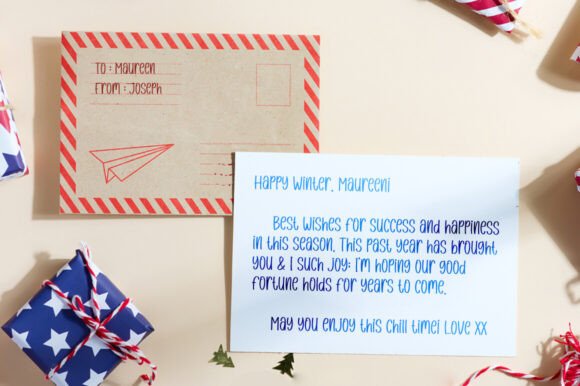 To : Maureen
From : Joseph
Happy Winter, Maureen!
Best wishes for success and happiness
in this season. This past year has brought
you & I such joy; I'm hoping our good
fortune holds for years to come.
May you enjoy this chill time! Love XX